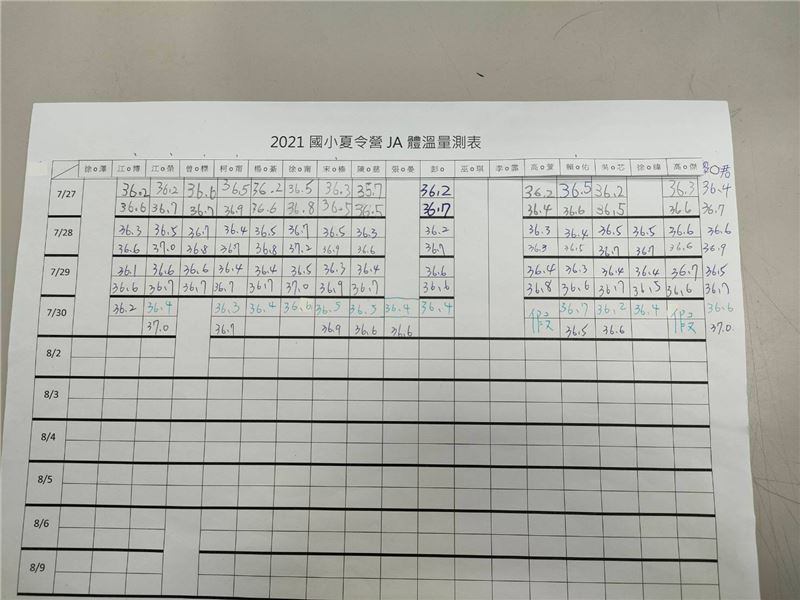 2021 國小夏令營 JA 體溫量測表
徐o澤 江o博 江o榮 曾o標 柯o甯 楊o蓁 徐o甯 宋o榛 陳o慈 張o晏 彭o 巫o琪 李o霏 高o萱 賴o佑 吳o芯 徐o緯 高o傑
7/27 36.2 36.2 36.6 36.5 36.2 36.5 36.3 35.7 36.2 36.2 36.5 36.2 36.3 36.4
36.6 36.7 36.7 36.9 36.6 36.8 36.5 36.5 36.7 36.4 36.6 36.5 36.6 36.7
7/28 36.3 36.5 36.7 36.4 36.5 36.7 36.5 36.3 36.2 36.3 36.4 36.5 36.5 36.6 36.6
36.6 37.0 36.8 36.7 36.8 37.2 36.9 36.6 36.7 36.9 36.5 36.7 36.7 36.6 36.9
7/29 36.1 36.6 36.6 36.4 36.4 36.5 36.3 36.4 36.6 36.4 36.3 36.4 36.4 36.7 36.5
36.6 36.7 36.7 36.7 36.7 37.0 36.9 36.7 36.6 36.8 36.6 36.7 36.5 36.6 36.7
7/30 36.2 36.4 36.3 36.4 36.6 36.5 36.5 36.4 36.4 36.7 36.2 36.4 36.6
37.0 36.7 36.9 36.6 36.6 36.5 36.6 37.0
8/2
8/3
8/4
8/5
8/6
8/9